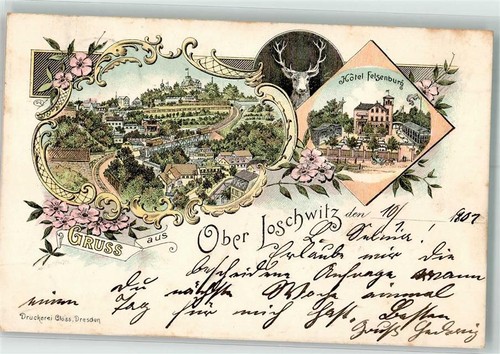 Hôtel Felsenburg
GRUSS aus Ober Loschwitz den 10/ 1902
L. Selma!
Erlaube mir die
bescheidene Anfrage wann
Du nächste Woche einmal
einen Tag für mich hast. Besten
Gruß Hedwig
Druckerei Glöss, Dresden